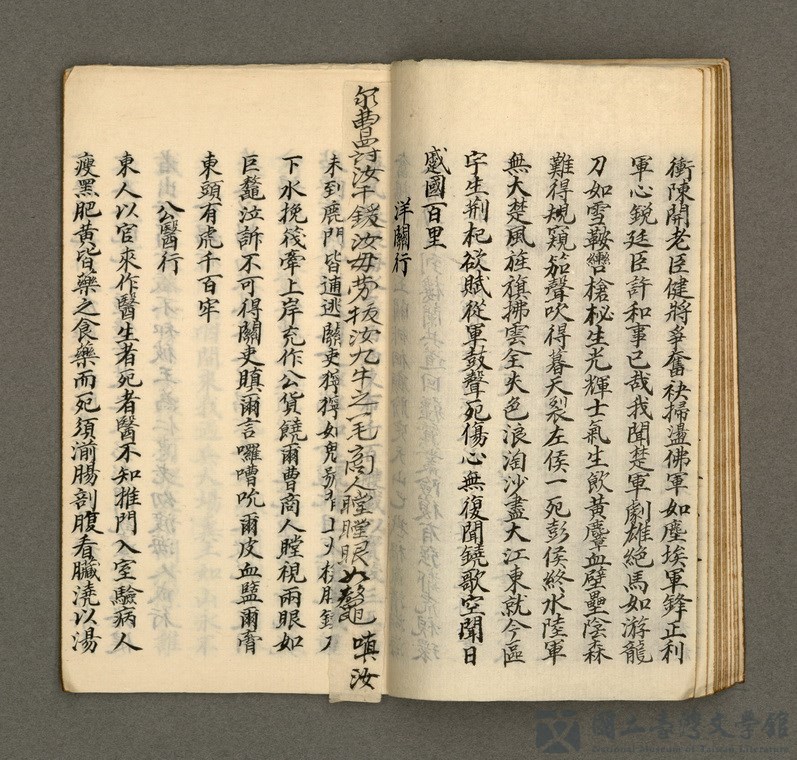 衝陳開老臣健將爭奮袂掃盪佛軍如塵埃軍鋒正利
軍心銳廷臣許和事已哉我聞楚軍劇雄絕馬如游龍
刀如雪鞍轡槍柲生光輝士氣生飲黃麞血壁壘陰森
難得規窺笳聲吹得暮天裂左侯一死彭侯終水陸軍
無大楚風旌旗拂雲全失色浪淘沙盡大江東就今區
宇生荆杞欲賦從軍鼓聲死傷心無復聞鐃歌空聞日
蹙國百里
洋關行
尔曹曷討汝千鍰汝毋勞拔汝九牛之毛商人瞠瞠眼如鼈嗔汝
未到鹿門皆逋逃關吏獰獰如鬼
下水挽篊牽上岸充作公貨饒爾曹商人瞠視兩眼如
巨鼇泣訴不可得關吏瞋爾言囉嘈吮爾皮血鹽爾膏
東頭有虎千百牢
公醫行
東人以官來作醫生者死者醫不知推門入室驗病人
瘦黑肥黃皆藥之食藥而死須湔腸剖腹看臟澆以湯
國立臺灣文學館
National Museum of Taiwan Literature